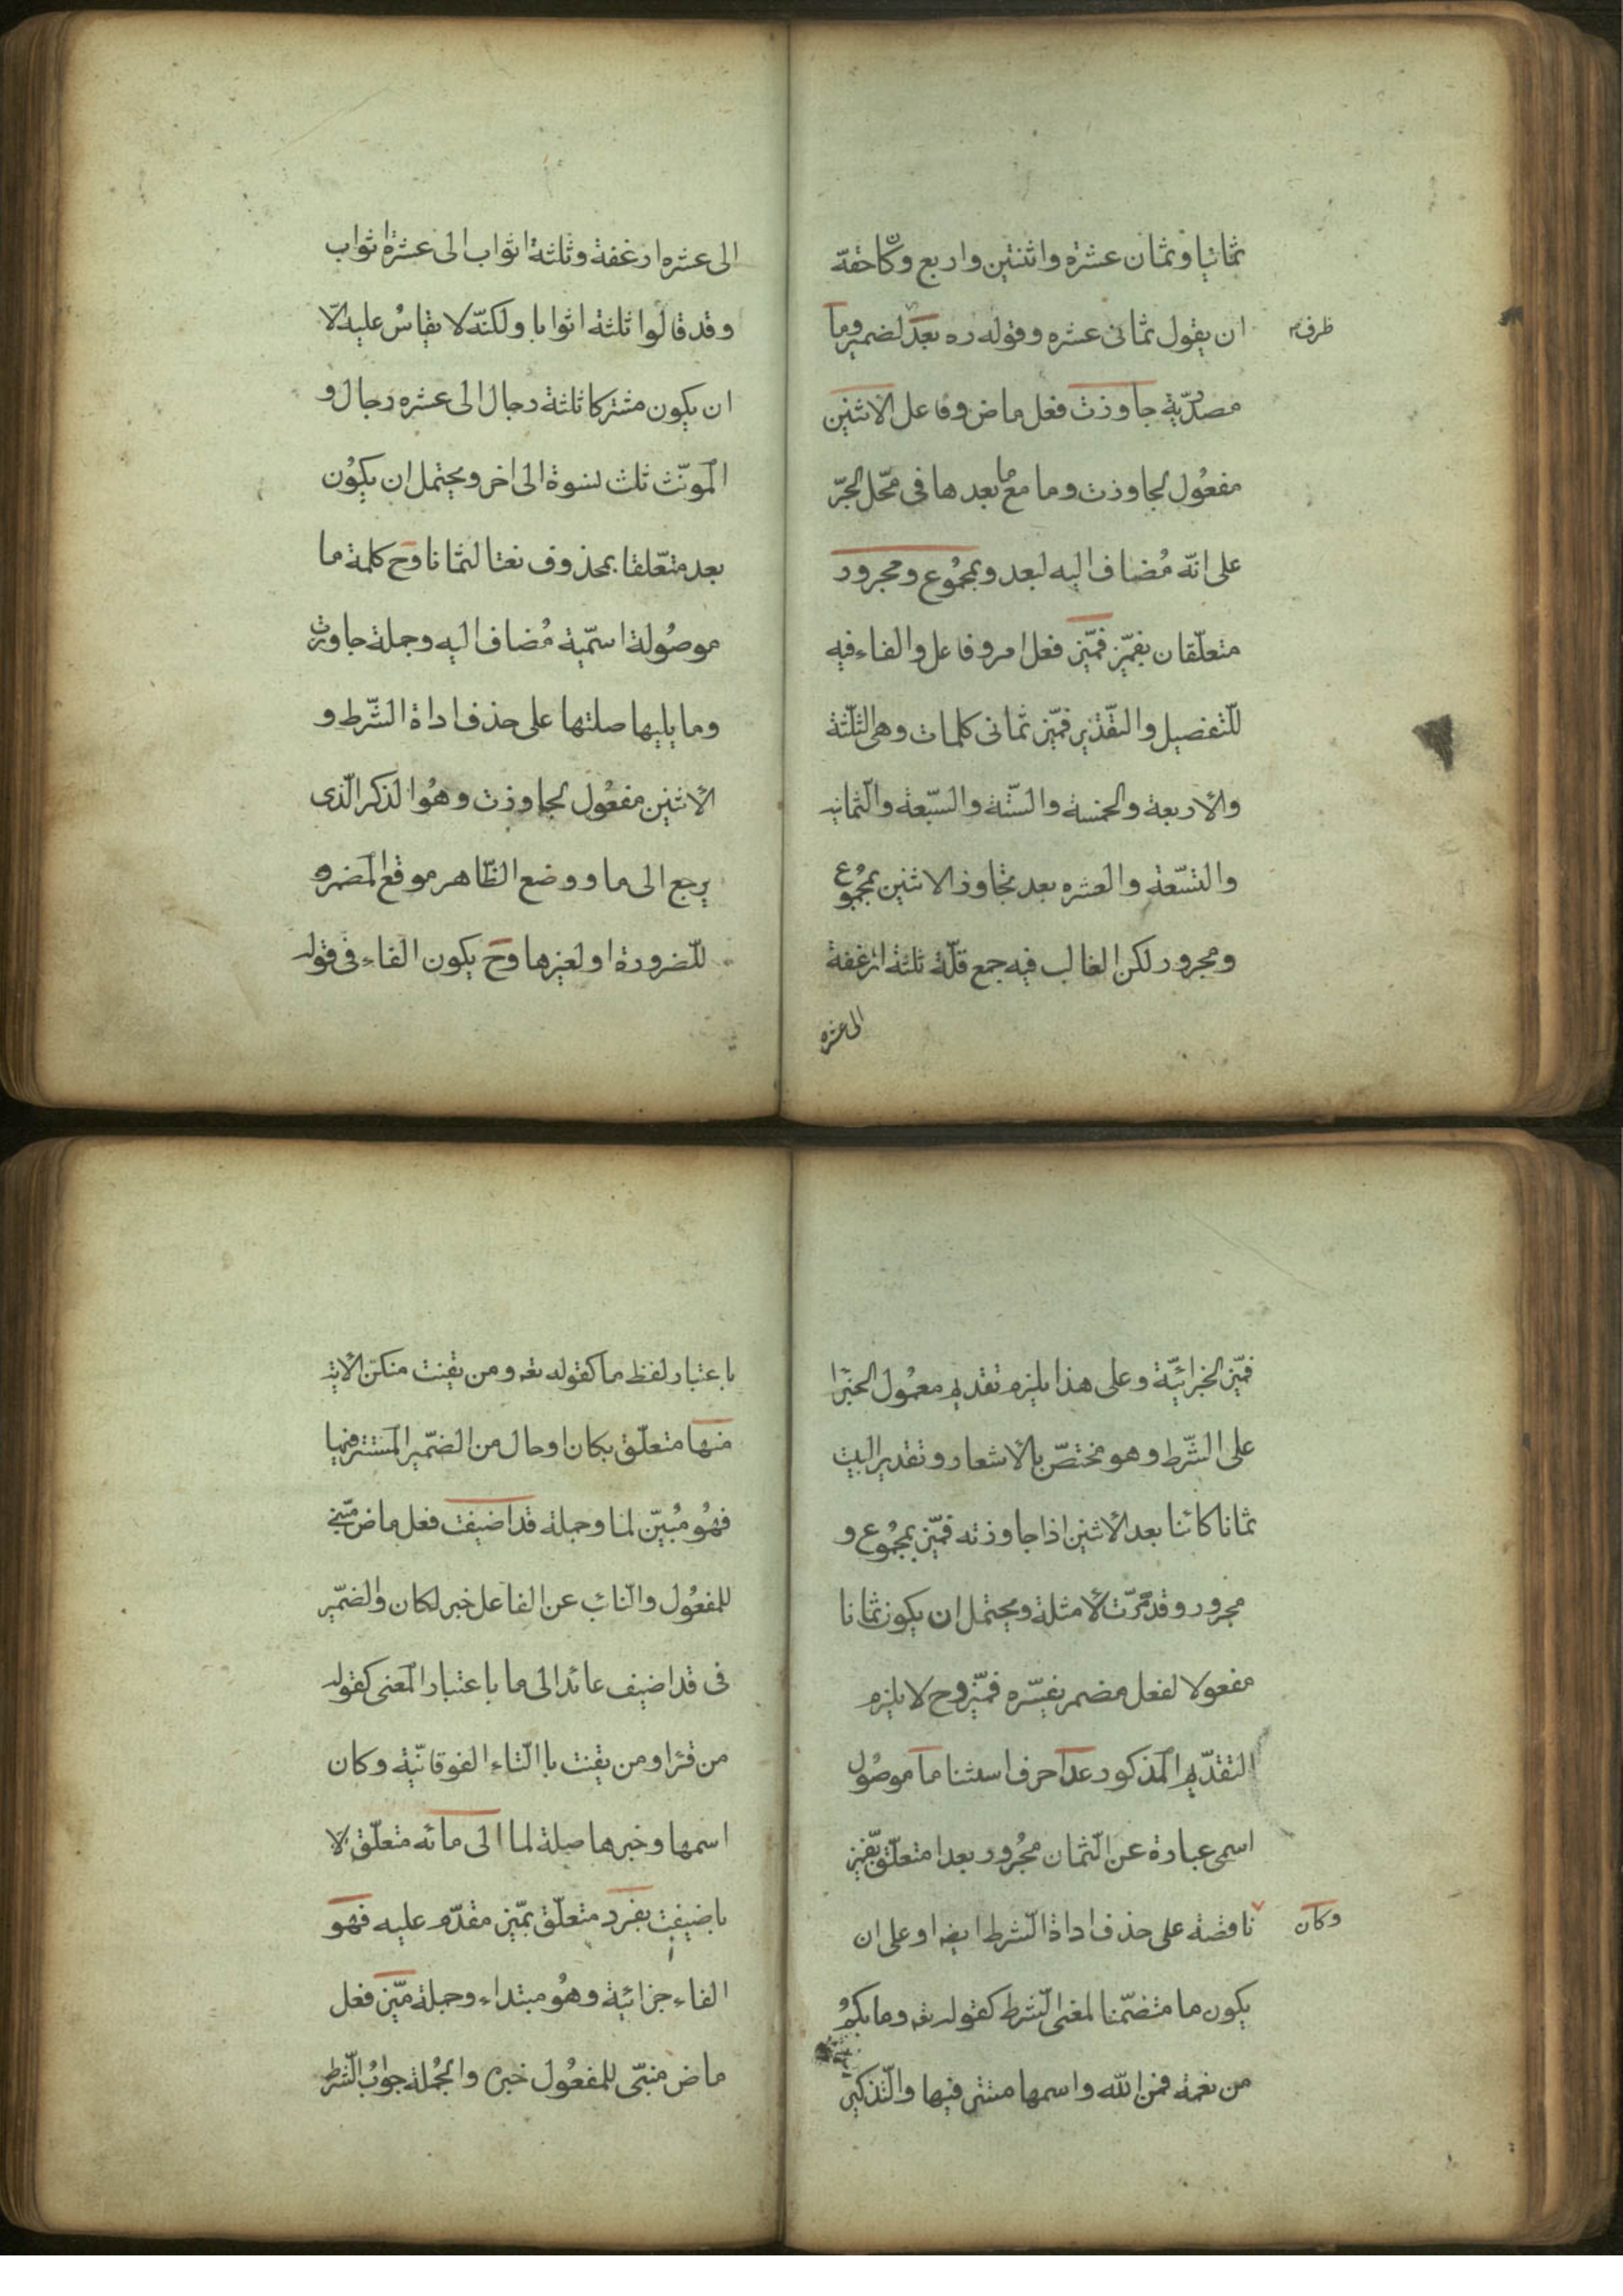 ثمانيا وثمان عشرة واثنتين واربع وكان حقه
ان يقول ثمانى عشره وقوله ره بعد لضمير وما
ظرف م
مصدريّة جاوزت فعل ماض وفاعل الاثنين
مفعُول لجاوزت وما مع ما بعدها فى محّل الجرّ
على انّه مُضاف اليه لبعد وبمجمُوع ومجرور
متعلّقان بفميّز فميّز فعل امر وفاعل والفاء فيه
للّتفصيل والتقدير فميّز ثمانى كلمات وهى الثلّثة
والاربعة والخمسة والستّة والسّبعة والثمانيه
والتسّعة والعشره بعد تجاوز الاثنين بمجمُوع
ومجرور لكن الغالب فيه جمع قلّة ثلثة ارغفة
الى عشره
الى عشره ارغفة وثلثة اثواب الى عشرة اثواب
وقد قالوا ثلثة اثوابا ولكنّه لا يقاسُ عليه الّا
ان يكون مشتركا ثلثة رجال الى عشره رجال و
المونّث ثلث نسوة الى اخر ويحتمل ان يكوُن
بعد متعّلقا بمحذوف نعتا لثمانا وح كلمة ما
موصُولة اسمّية مُضاف اليه وجملة جاوزت
وما يليها صلتها على حذف اداة الشّرط و
الاثنين مفعُول لجاوزت وهُو الذكر الّذى
يرجع الى ما ووضع الظّاهر موقع المضمره
للّضرورة او لغيرها وح يكون الفاء فى قوله
فميّز الجزائيّة وعلى هذا يلزم تقديم معمُول الجزا
على الشّرط وهو مختصّ بالاشعار وتقدير البيت
ثمانا كائنا بعد الاثنين اذا جاوزته فميّز بمجمُوع و
مجرور وقد مرّت الامثلة ويحتمل ان يكون ثمانا
مفعولا لفعل مضمر يفسّره فميّز وح لا يلزم
التقدّيم المذكور عدا حرف استثنا ما موصُول
اسمى عبارة عن الثمان مجُرور بعدا متعلّق بميّز
وكان
ناقصة على حذف اداة الشرط ايضه او على ان
يكون ما متضمّنا لمعنى الّشرط كقوله تعه وما بكمُ
من نعمة فمن اللّه واسمها مستتر فيها والتّذكير
باعتبار لفظ ما كقوله تعه ومن يقنت منكنّ الايه
منها متعلّق بكان او حال من الضمّير المستتر فيها
فهُو مُبيّن لما وجملة قد اضيفت فعل ماض مبّنى
للمفعُول والنائب عن الفاعل خبر لكان والضمّير
فى قد اضيف عائد الى ما باعتبار المعنى كقوله
من قرا ومن يقنت باالتاء الفوقانيّة وكان
اسمها وخبرها صلة لما الى مائه متعلّق لا
باضيفت بفرد متعلّق بميّز مقدّم عليه فهو
الفاء جزائية وهُو مبتداء وجملة ميّز فعل
ماض مبنّى للمفعُول خبره والجُملة جوابُ الشّرط